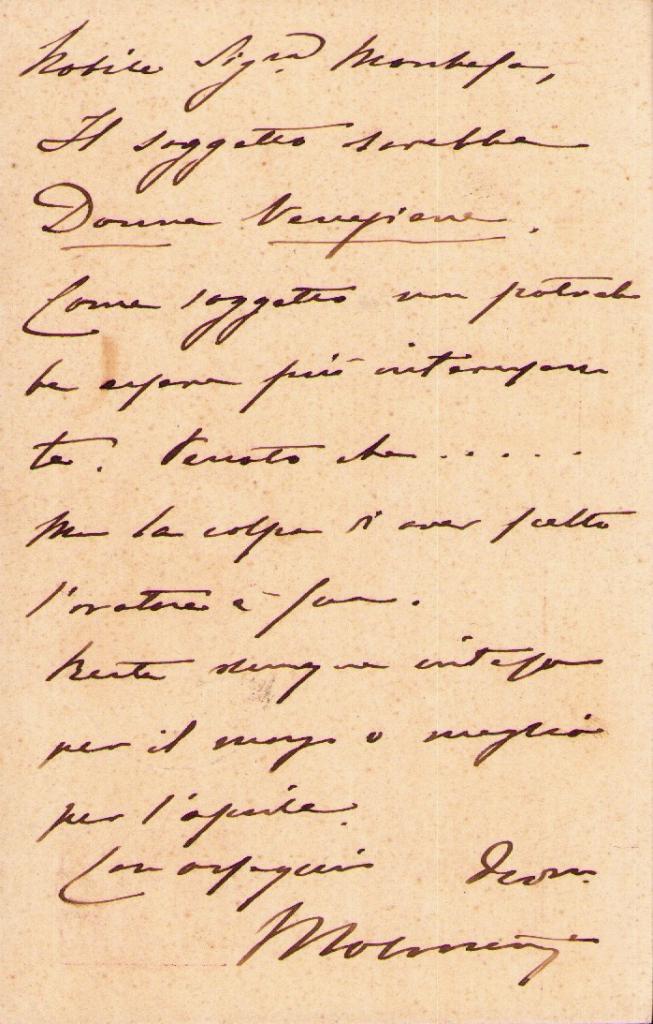 Nobile Sigra
Il soggetto sarebbe
Donne Veneziane.
Come soggetto non potreb
be essere più interessan
te. Venoto che .....
Ma la colpa di aver scelto
l'oratore è sua.
Resta dunque inteso
per il marzo o meglio
per l'aprile.
Con ossequi Devm.
Molmenti